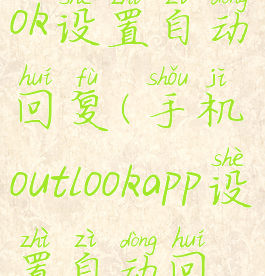 ok设置自动
huí fù shǒu jī
回复(手机
shè
outlookapp设
zhì zì dòng huí
置自动回